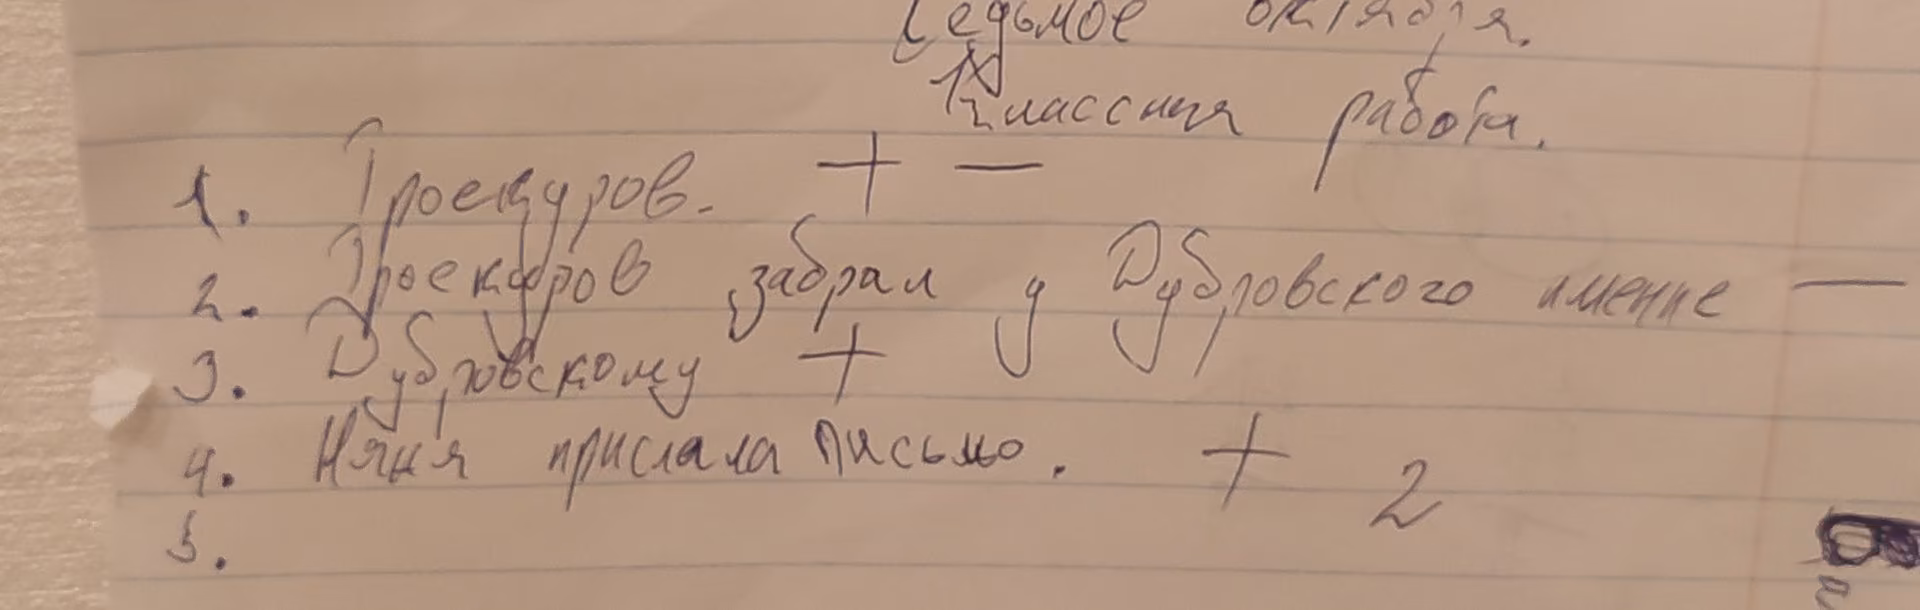 Седьмое октября.
Классная работа.
1. Троекуров. + —
2. Троекуров забрал у Дубровского имение —
3. Дубровскому +
4. Няня прислала письмо. + 2
5.